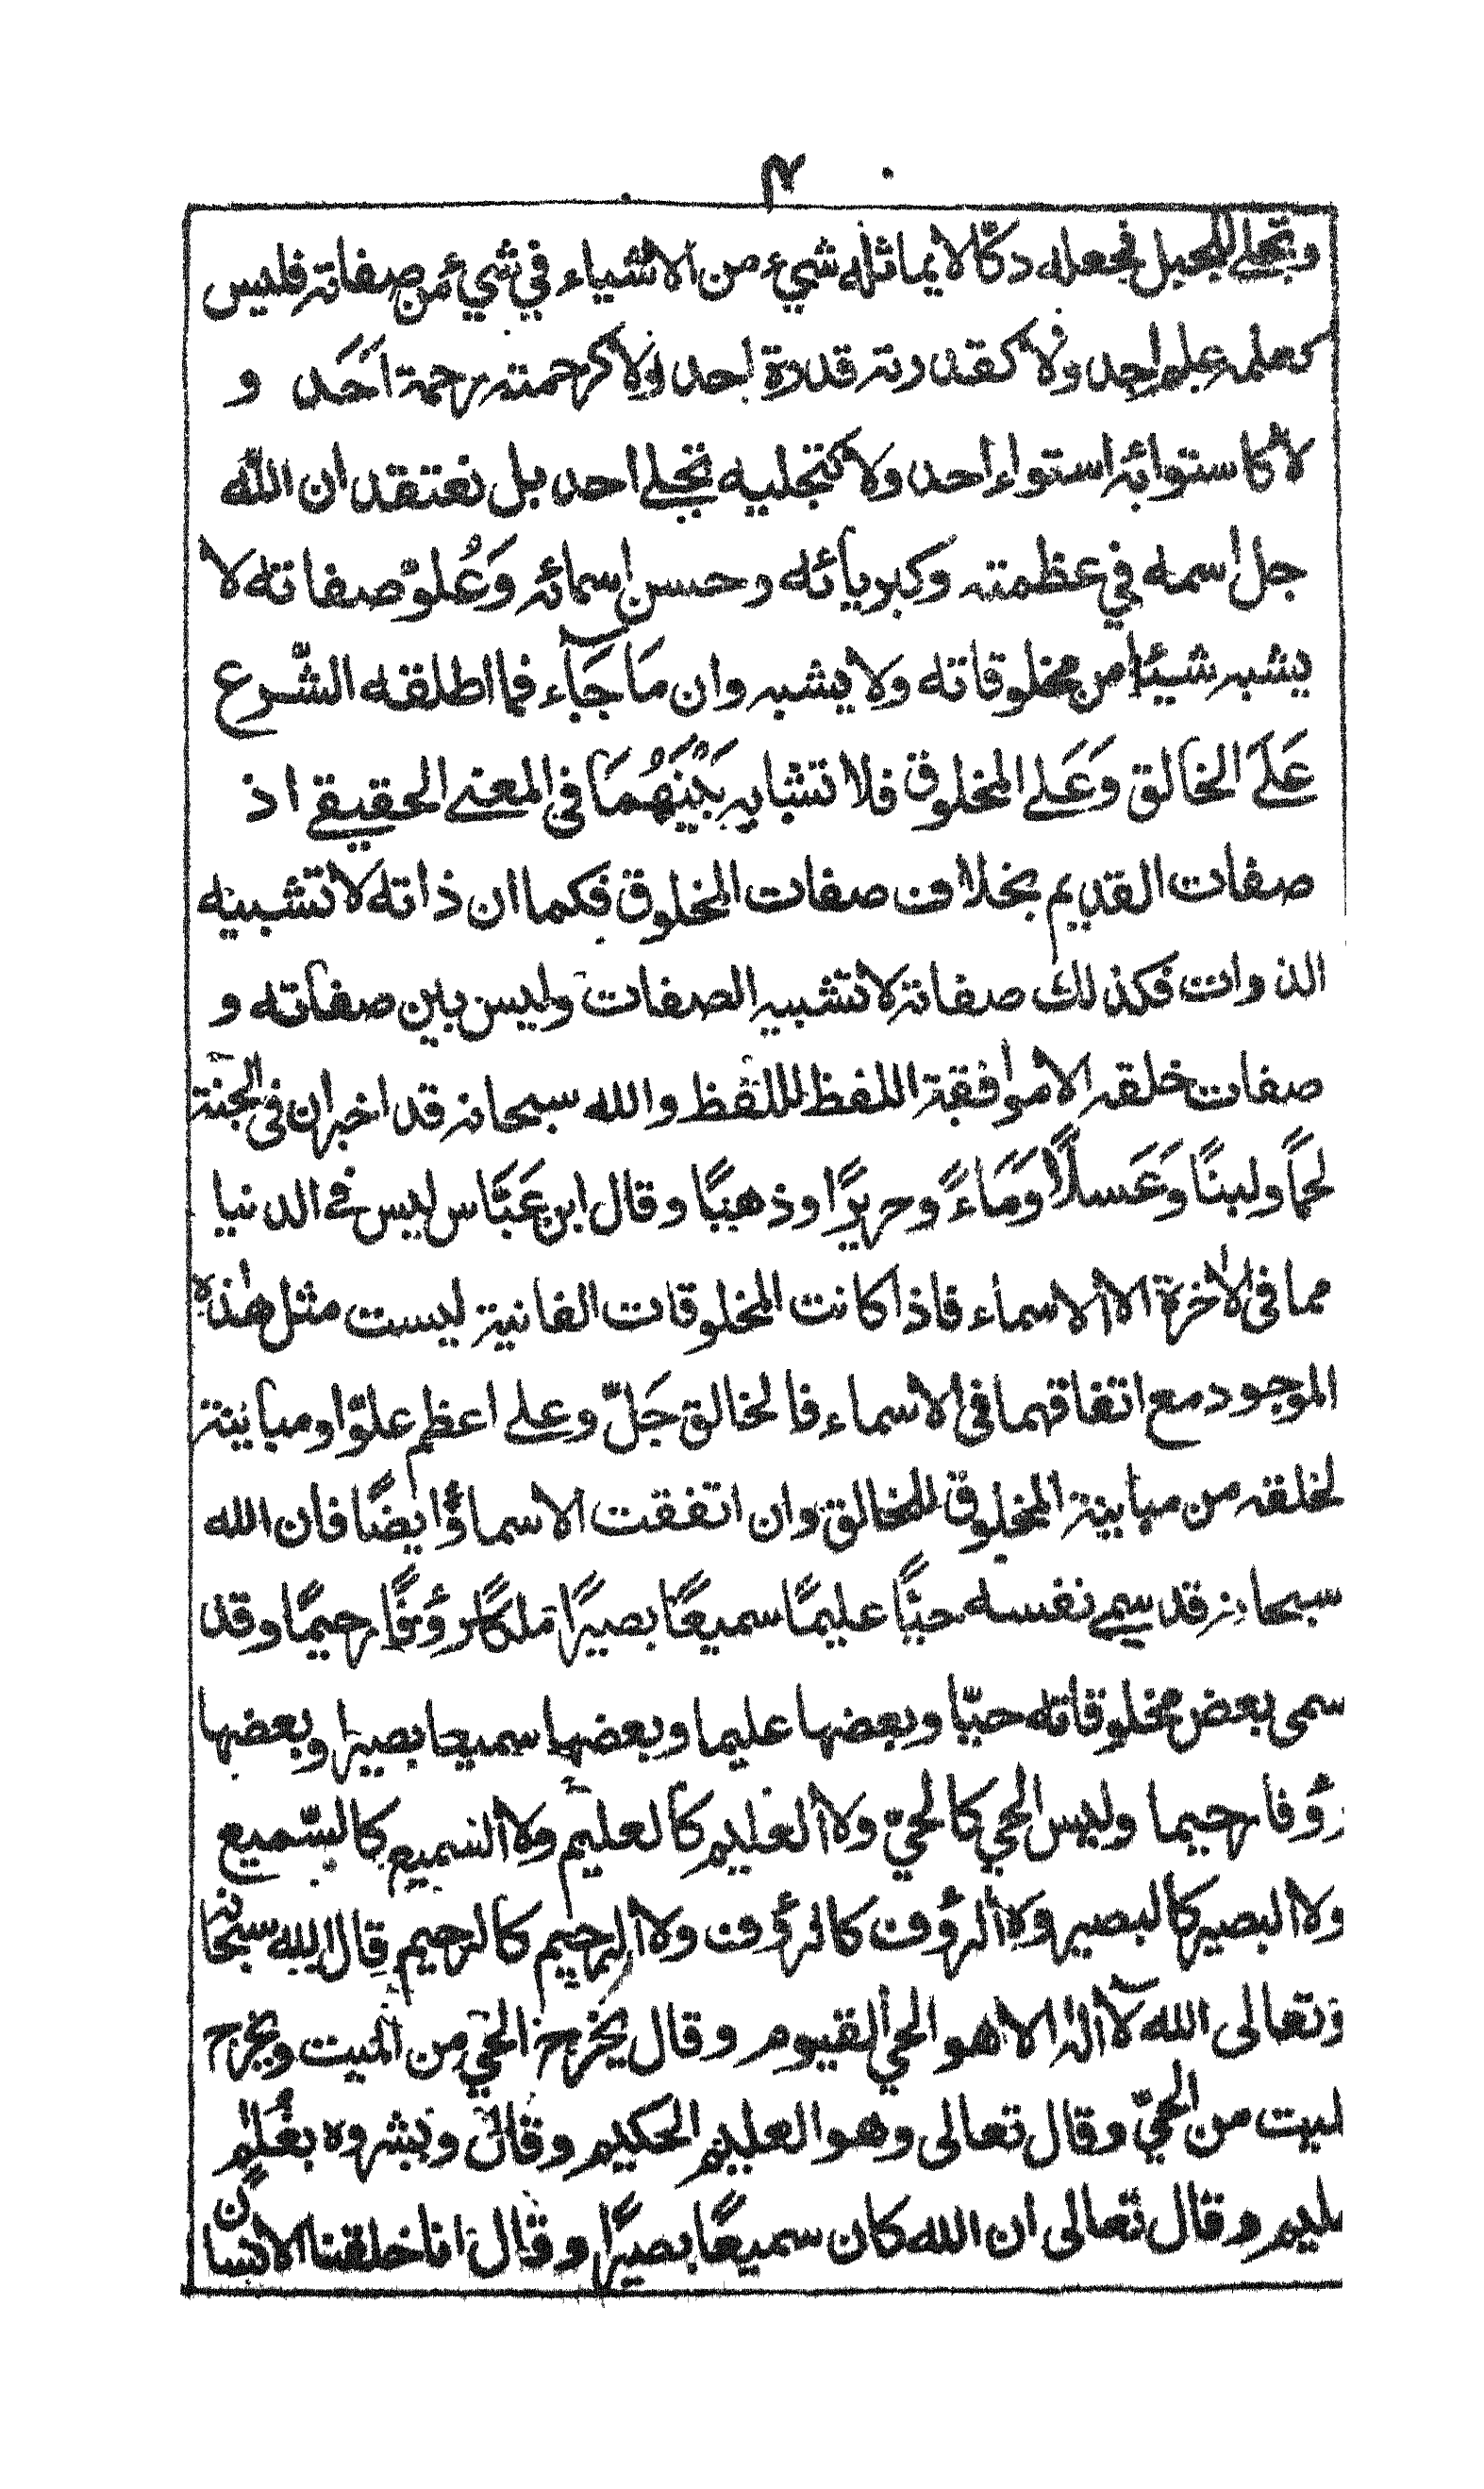 ٣
وتجلى للجبل فجعله دكّا لا يماثله شيء من الاشياء في شيء من صفاته فليس
كعلمه علم احد ولا كقدرته قدرة احد ولا كرحمته رحمة اَحَد و
لا كاستوائه استواء احد ولا كتجليه تجلي احد بل نعتقد ان اللّٰه
جل اسمه في عظمته وكبريائه وحسن اسمائه وَعُلوّ صفاته لا
يشبه شيئًا من مخلوقاته ولا يشبه وان مَا جَاء فما اطلقه الشّرع
عَلَى الخالق وَعَلى المخلوق فلا تشابه بَيْنَهُمَا في المعنى الحقيقي اذ
صفات القديم بخلاف صفات المخلوق فكما ان ذاته لا تشبيه
الذوات فكذلك صفاته لا تشبيه الصفات وليس بين صفاته و
صفات خلقه الا موافقة اللفظ للفظ والله سبحانه قد اخبر ان فى الجنة
لحمًا ولبنًا وَعَسلًا وَمَاءً وحريرًا وذهبًا وقال ابن عَبَّاس ليس في الدنيا
مما فى الاخرة الا الاسماء فاذا كانت المخلوقات الفانية ليست مثل هٰذه
الموجود مع اتفاقهما فى الاسماء فالخالق جَلّ وعلى اعظم علوّا ومباينة
لخلقه من مباينة المخلوق للخالق وان اتفقت الاسماؤ ايضًا فان الله
سبحانه قد سمى نفسه حيًّا عليمًا سميعًا بصيرًا ملكًا رؤفًا رحيمًا وقد
سمى بعض مخلوقاته حيّا وبعضها عليما وبعضها سميعا بصيرا وبعضها
رؤفا رحيما وليس الحي كالحيّ ولا العليم كالعليم ولا السميع كالسّميع
ولا البصير كالبصير ولا الرؤف كالرؤف ولا الرحيم كالرحيم قال الله سبحانه
وتعالى الله لآ اله الا هو الحي القيوم وقال يخرج الحي من الميت ويخرج
لميت من الحيّ وقال تعالى وهو العليم الحكيم وقال وبشروه بغُلٰم
عليم وقال تعالى ان الله كان سميعًا بصيرًا وقال انا خلقنا الانسان